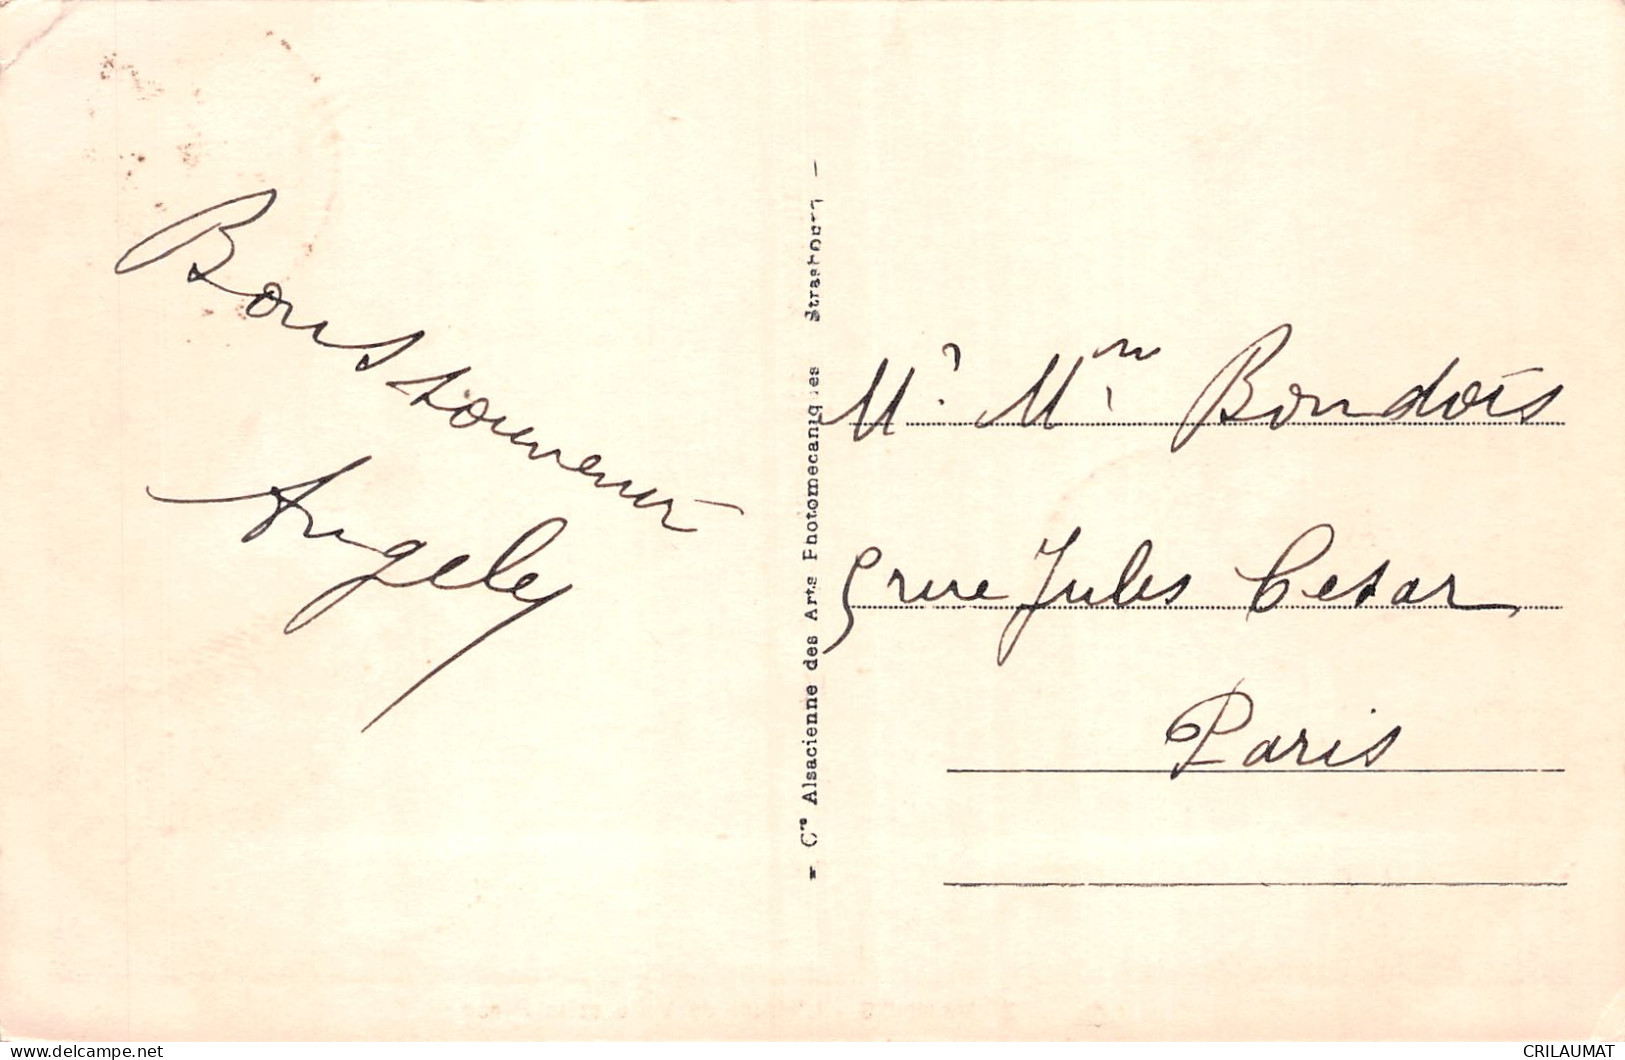 Bons souvenirs
Angely
= Cie Alsacienne des Arts Photomecaniques Strasbourg -
Mr. Mme Bondois
5 rue Jules Cesar
Paris
CRILAUMAT